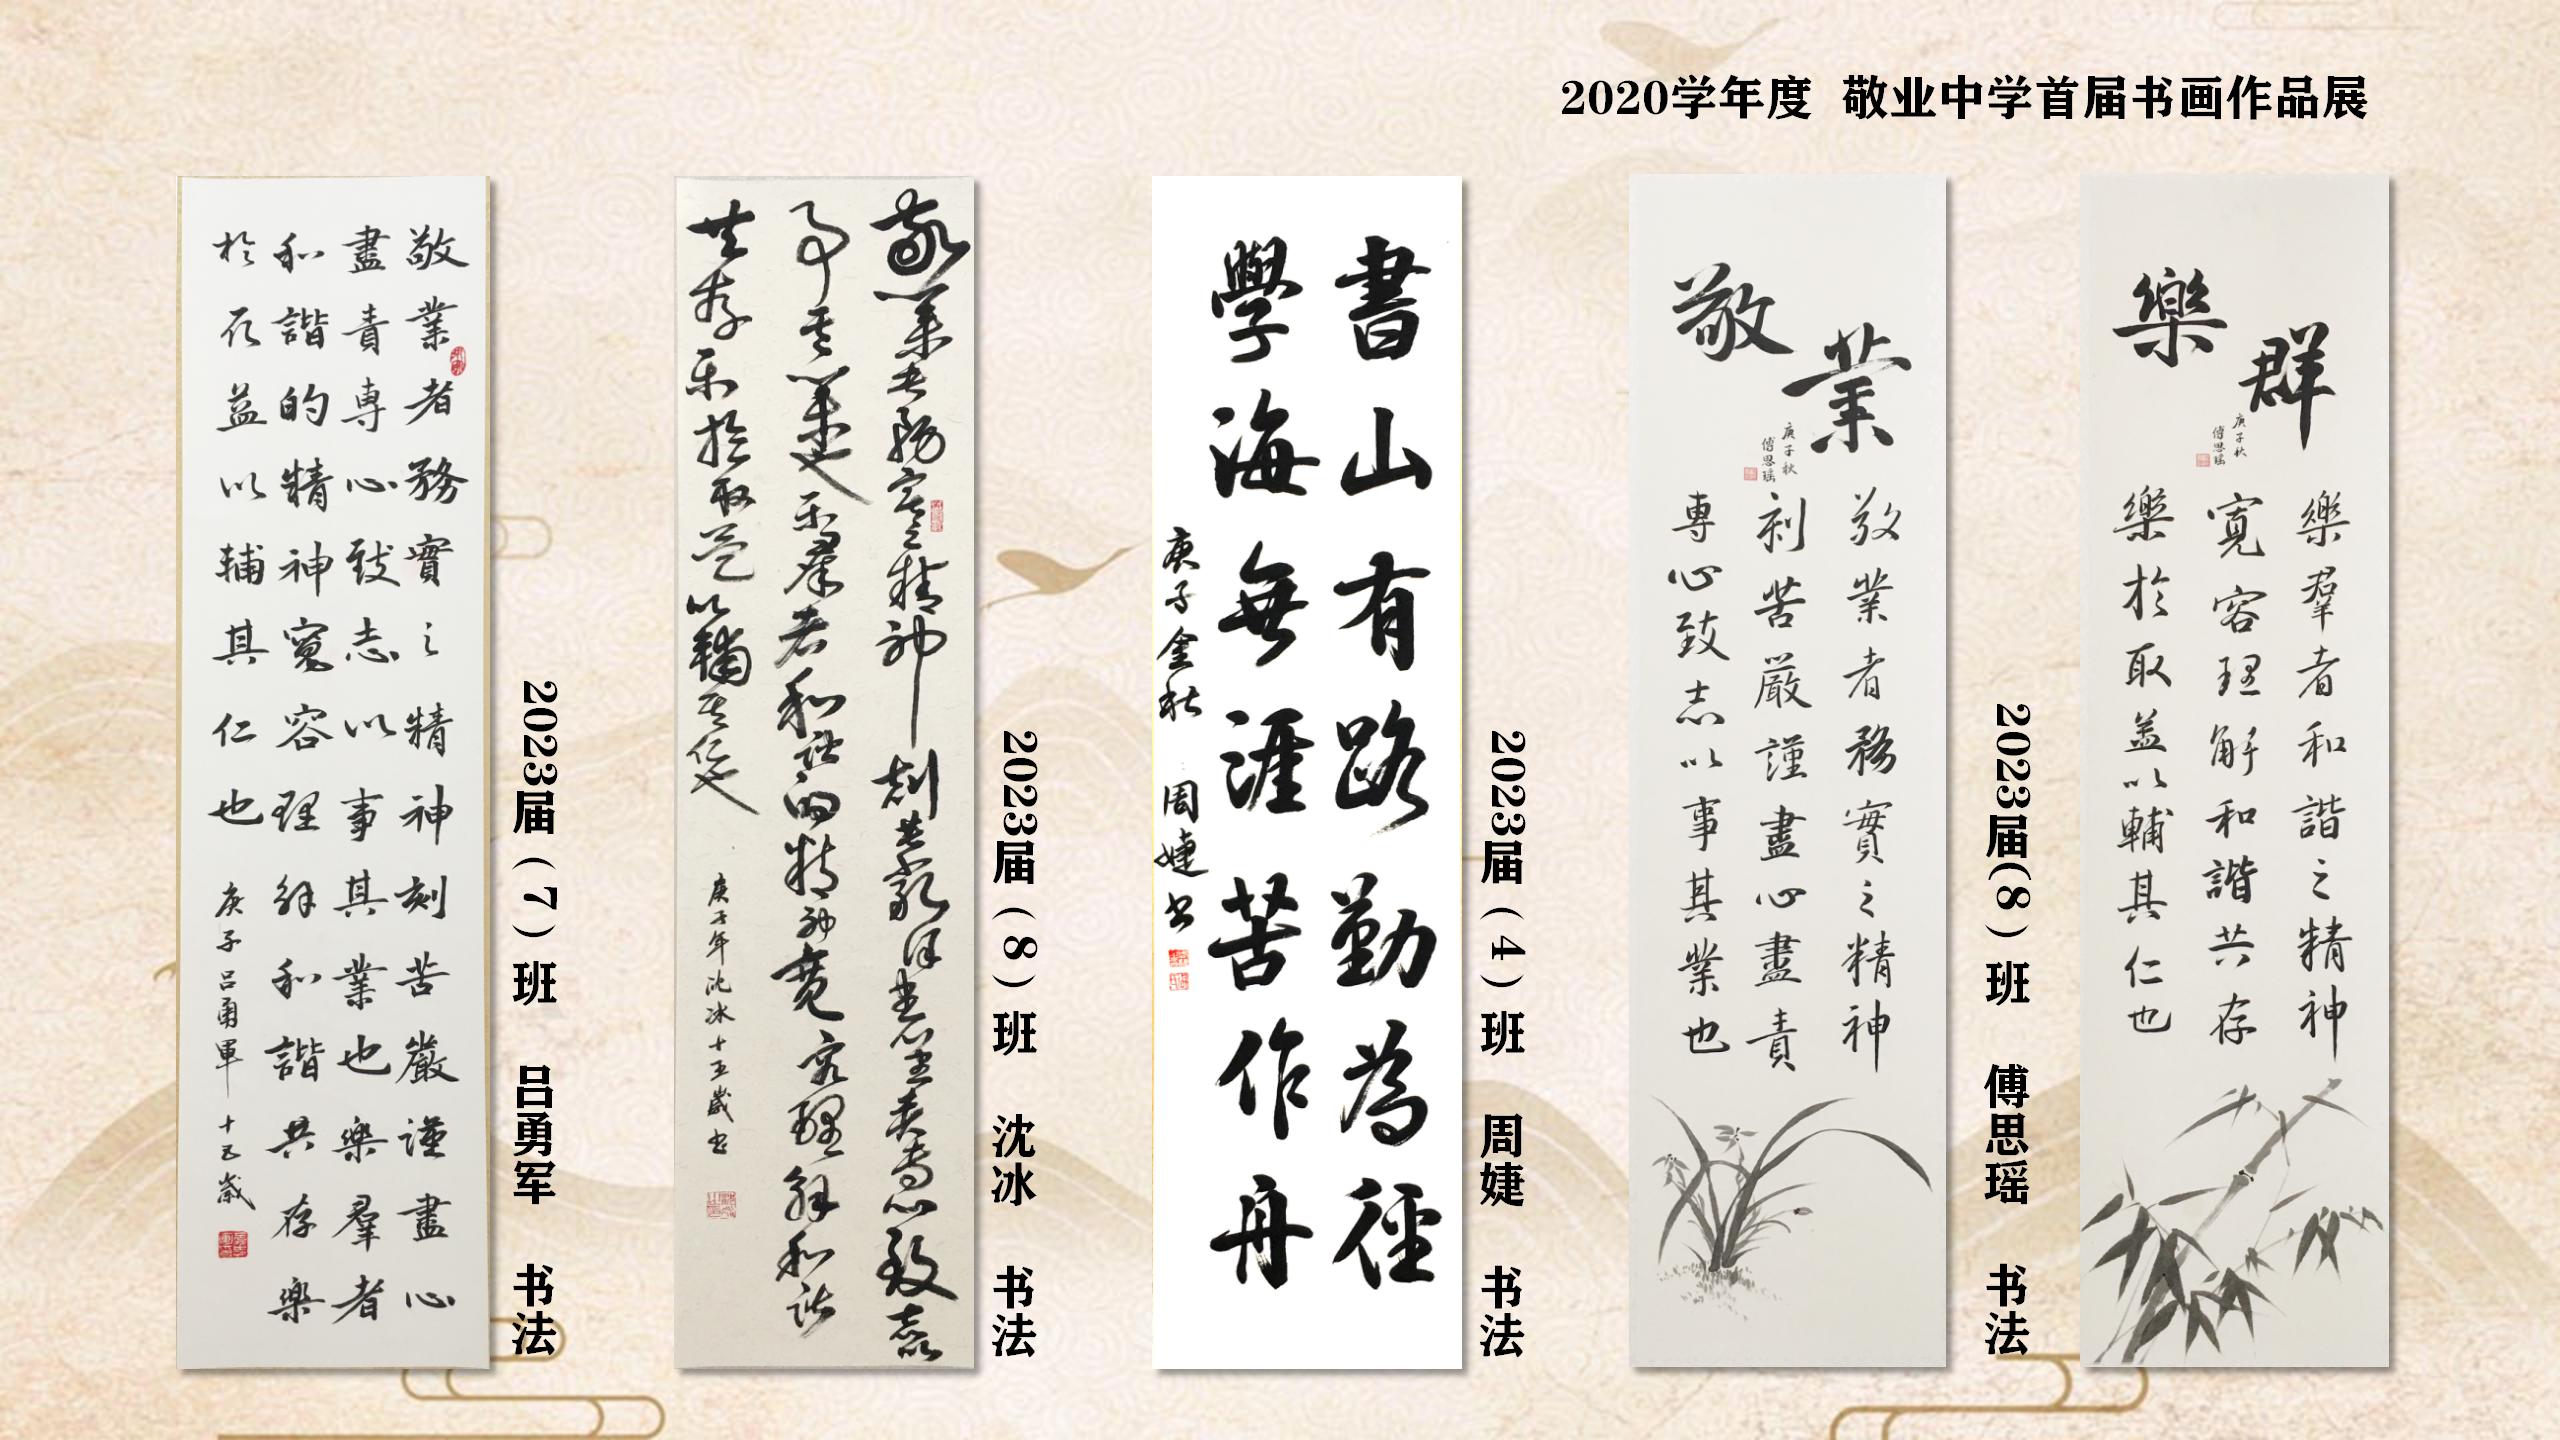 2020学年度 敬业中学首届书画作品展
敬業者務實之精神刻苦嚴謹盡心
盡責專心致志以事其業也樂羣者
和諧的精神寬容理解和諧共存樂
於取益以輔其仁也
庚子吕勇軍 十五歲
2023届（7）班 吕勇军 书法
敬業者務實之精神刻苦嚴謹盡心盡責專心致志以
事其業也樂羣者和諧的精神寬容理解和諧
共存樂於取益以輔其仁也
庚子年沈冰十五歲书
2023届（8）班 沈冰 书法
書山有路勤為徑
學海無涯苦作舟
庚子金秋 周婕书
2023届（4）班 周婕 书法
敬業
庚子秋
傅思瑶
敬業者務實之精神
刻苦嚴謹盡心盡責
專心致志以事其業也
2023届(8）班 傅思瑶 书法
樂群
庚子秋
傅思瑶
樂羣者和諧之精神
寬容理解和諧共存
樂於取益以輔其仁也